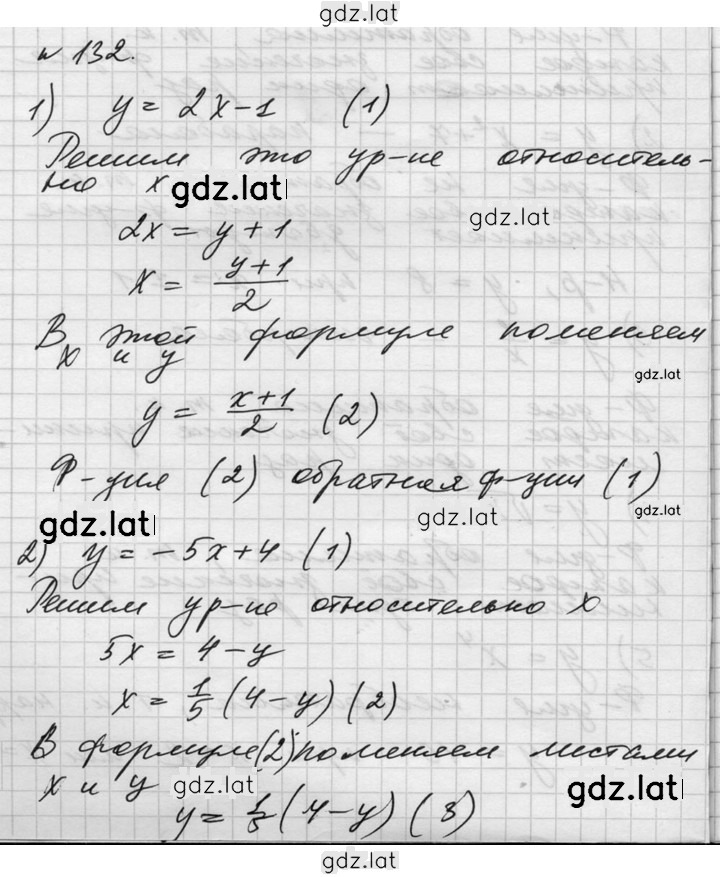 gdz.lat
№ 132.
1) y = 2x-1 (1)
Решим это ур-ие относитель-
но x gdz.lat
gdz.lat
2x = y + 1
x = (y+1)/2
В этой формуле поменяем
x и y
gdz.lat
y = (x+1)/2 (2)
Ф-ция (2) обратная ф-ции (1)
gdz.lat gdz.lat gdz.lat
2) y = -5x+4 (1)
Решим ур-ие относительно x
5x = 4-y
x = 1/5 (4-y) (2)
В формуле (2) поменяем местами
x и y gdz.lat gdz.lat
y = 1/5 (4-y) (3)
gdz.lat